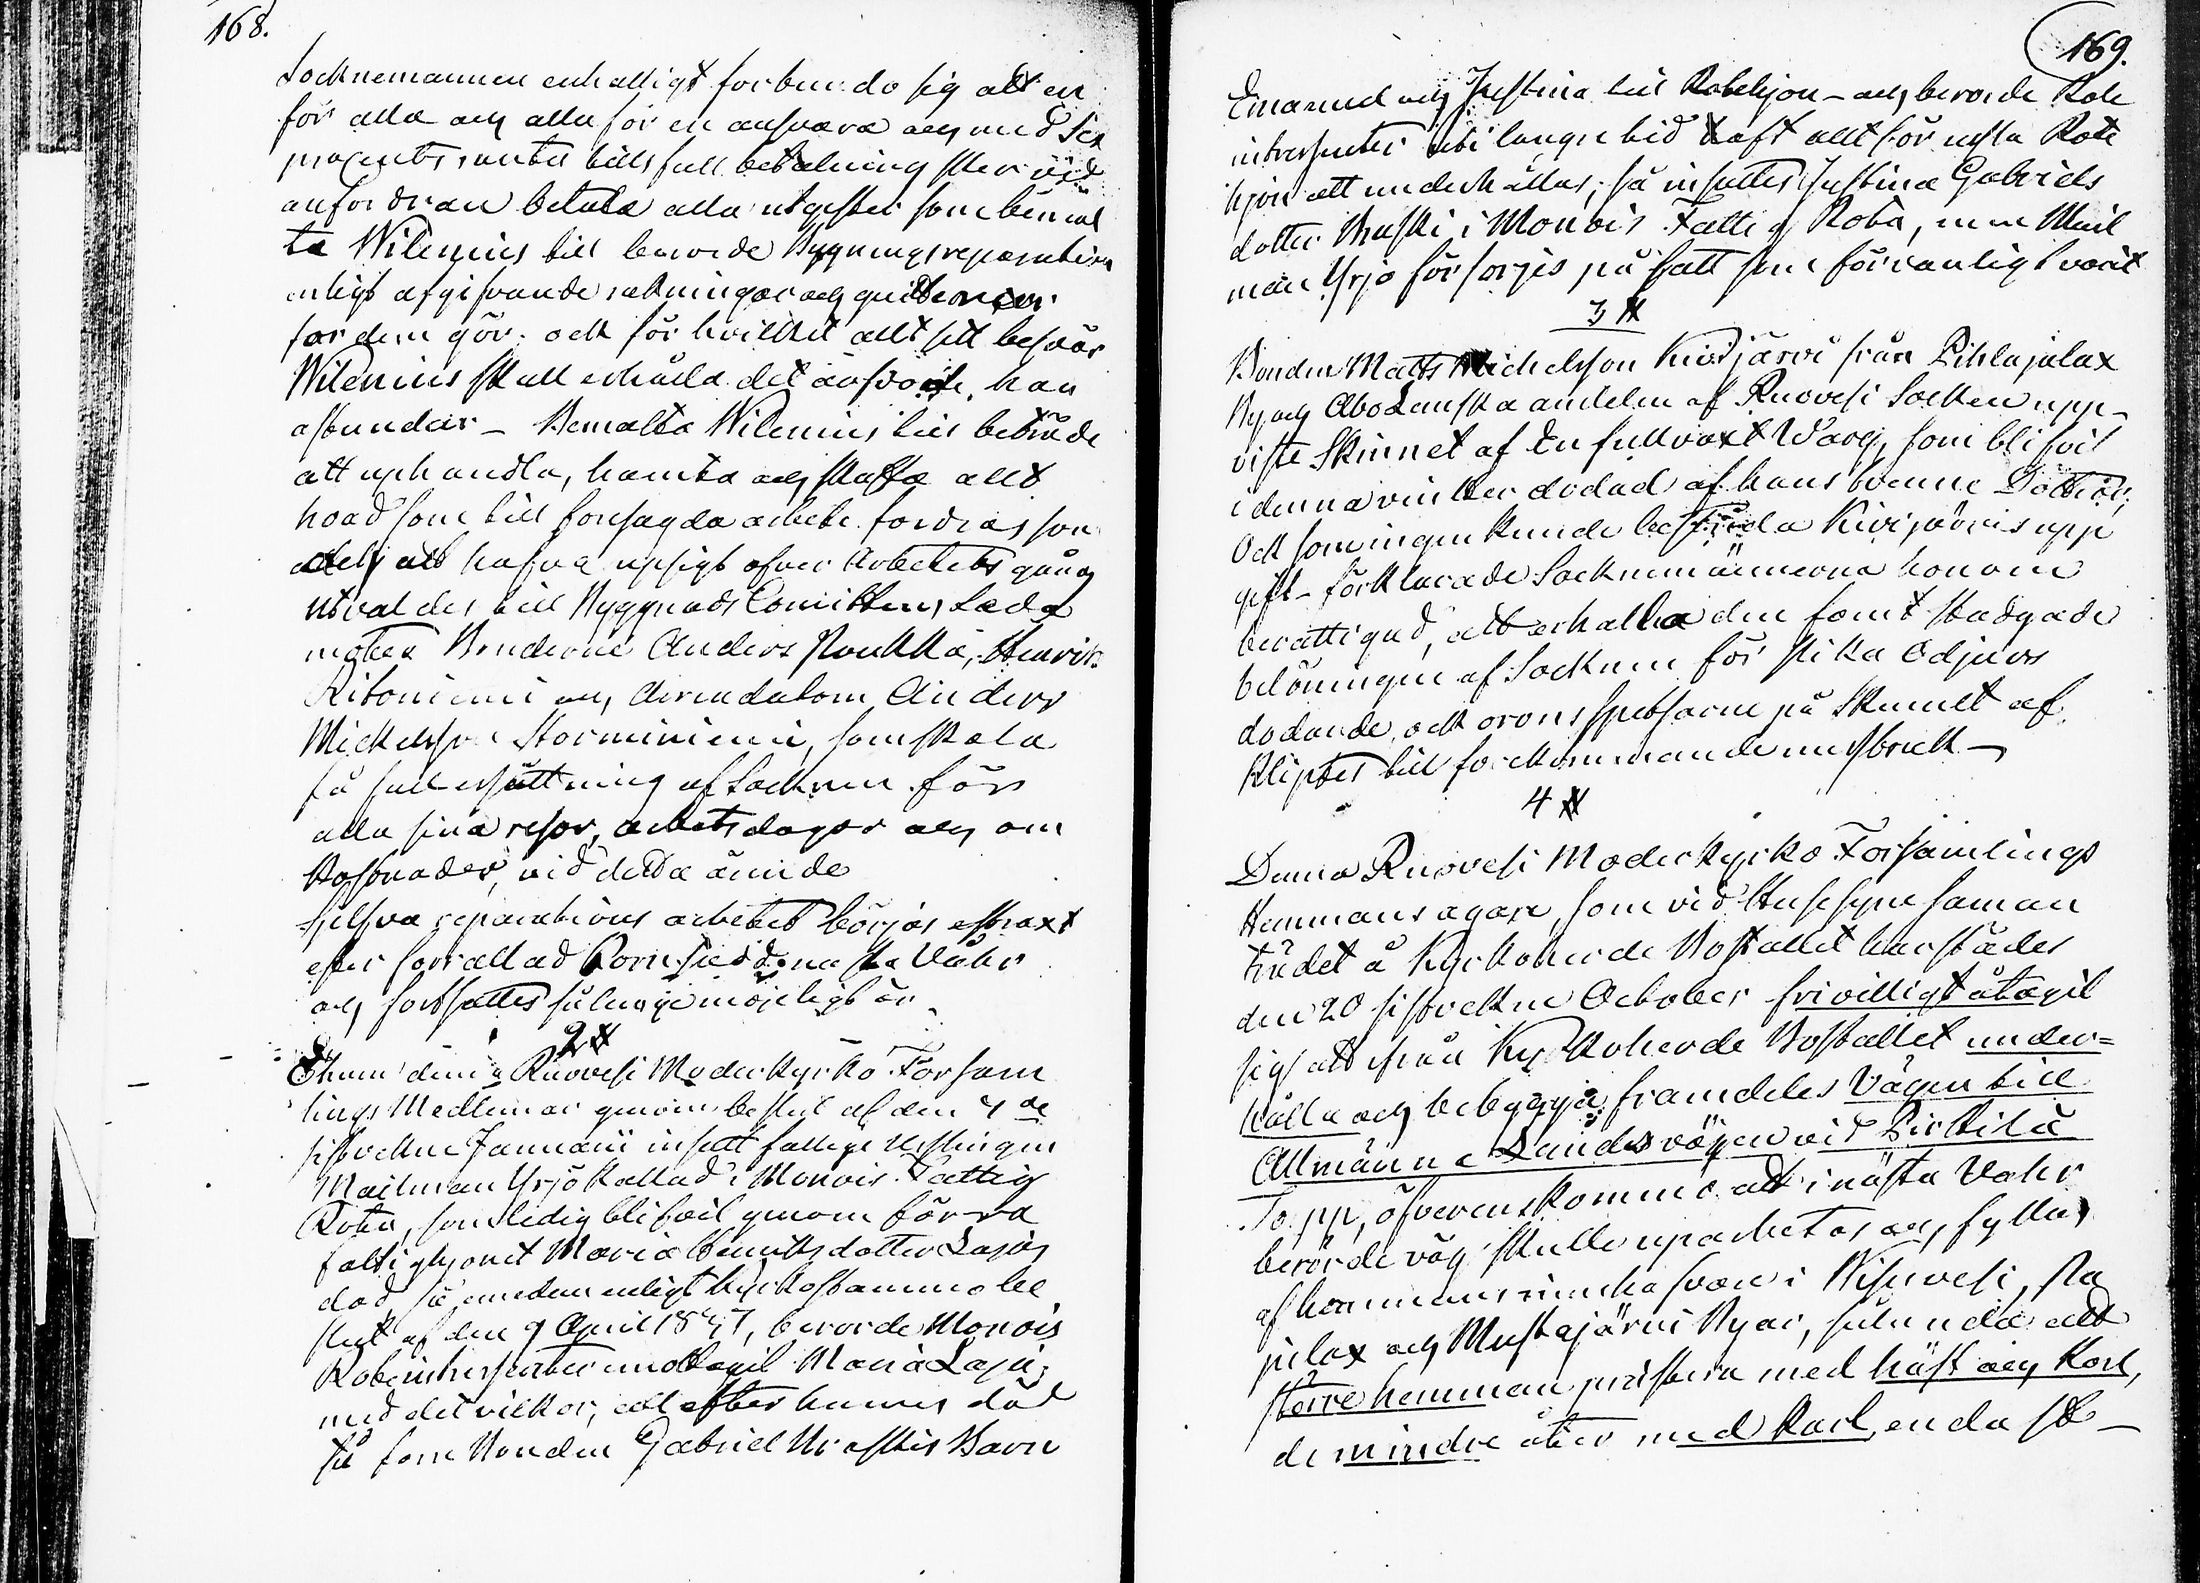 168.
Socknemannen enhälligt förbundo sig att en
för alla och alla för en ansvara och med Sex
procents ranta tills full betalning sker vid
anfordran betala alla utgifter som bemäl
te Wilenius till berörde Bygningsreparation
enligt afgifvande räkningar och quittencier
for dem gör; och för hvilket allt sitt besvär
Wilenius skall erhålla det ansvar, han
astundar – Bemälta Wilenius till beträde
att uphandla, hamta och skaffa allt
hvad som till foresagda arbete fordras som
att hafva upsigt öfver Arbetets gång
utvaldes till Byggnads Comitteens Leda
möter Bönderne Anders Ruokka, Henrik
Ritoniemi och Arrendatorn Anders
Mickelsson Storminiemi, som skola
få full ersättning af Socknen för
alla sina resor, arbetsdagar och om
kostnader, vid detta ärende
Sjelfva reparations arbetet börjas straxt
efter forrättad Korn sådd nästa Våhr
och fortsättes så länge möjeligt är.
2 §
Ehuru denna Ruovesi Moderkyrko Forsam
lings Medlemar genom beslut af den 4 de
sistvekne Januarii insatt fattige Ynglingen
Mailman Yrjö kallad i Monois Fattig
Rota, som ledig blifvit genom förra
fattighjonet Maria Henriksdotter Lasus
död, så emedan enligt Kyrkostammo be
slut af den 9 April 1847, berorde Monois
Roteintressenter emottagit Maria Lasu,
med det vilkor, att efter hennes död
få som Bonden Gabriel Uraskis Barn
169.
Emanuel och Justina till Rotehjon – och berorde Rote
intressenter uti langre tid haft allt för usla Rote
hjon att underhållas; så insattes Justina Gabriels
dotter Uraski i Monois Fattig Rota, men Mail
man Yrjö försorjes på satt som förr vanligt varit
3 §
Bonden Matts Michelsson Kivijärvi från Pihlajalax
By och Abo Lanska andelen af Ruovesi Socken upp-
viste Skinnet af En fullvaxt Warg, som blifvit
i denna vinter dödad af hans tvenne Döttrar,
Och som ingen kunde bestrida Kivijärvis upp
gift – förklarade Socknemännerna honom
berättigad, att erhalla den fomt stadgade
belöningen af Socknen för slika Odjurs
dodande, och orons spetsarne på Skinnet af
kliptes till forekommande missbruk –
4 §
Denna Ruovesi Moderkyrko Forsamlings
Hemmans agare, som vid Husesyne saman
trädet å Kyrkoherde Bostället harstädes
den 20 sistvekne October frivilligt åtagit
sig att ifrån Kyrkoherde Bostället under=
hålla och bebygga framdeles Vägen till
Allmänna Landsvägen vid Pirkilä
Topp, öfverenskommo att i nästa Vahr
berörde väg skulle uparbetas och fyllas
af hemmans innehafvare i Wisuvesi, Pa
julax och Mustajärvi Byar, sålunda att
större hemman præstera med häst och Karl,
de mindre åter med Karl, enda st–